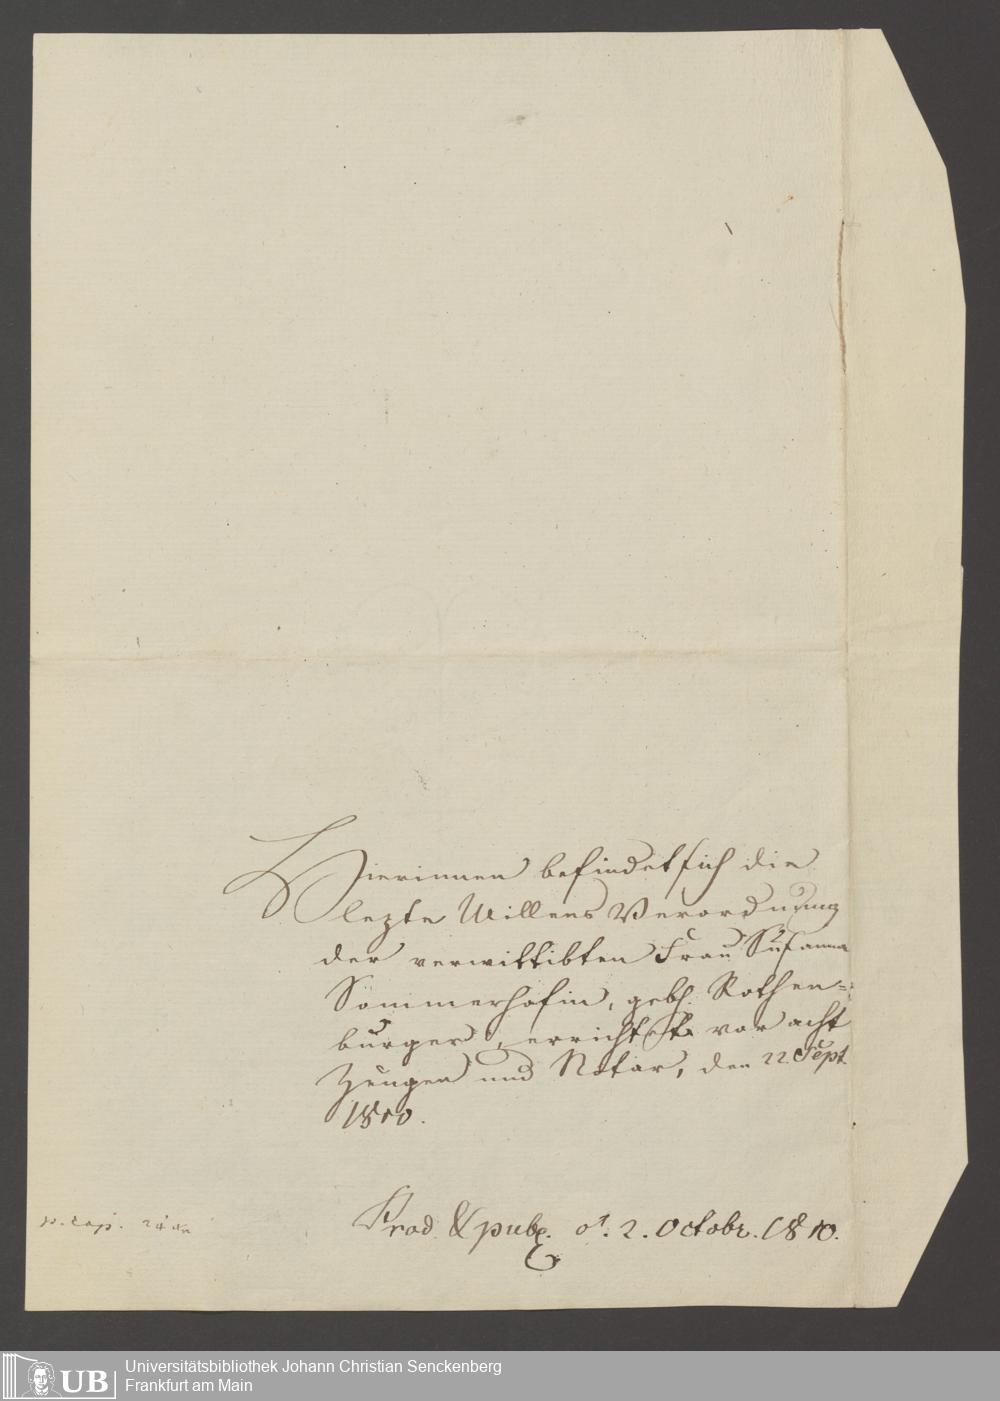 Hierinnen befindet sich die
lezte Willens Verordnung
der verwittibten Frau Susanna
Sommerhofin, gebh. Rothen-
burger, errichtet vor acht
Zeugen und Notar, den 22. Sept.
1810.
Prod. & publ. d. 2. Octobr. 1810.
UB
Universitätsbibliothek Johann Christian Senckenberg
Frankfurt am Main